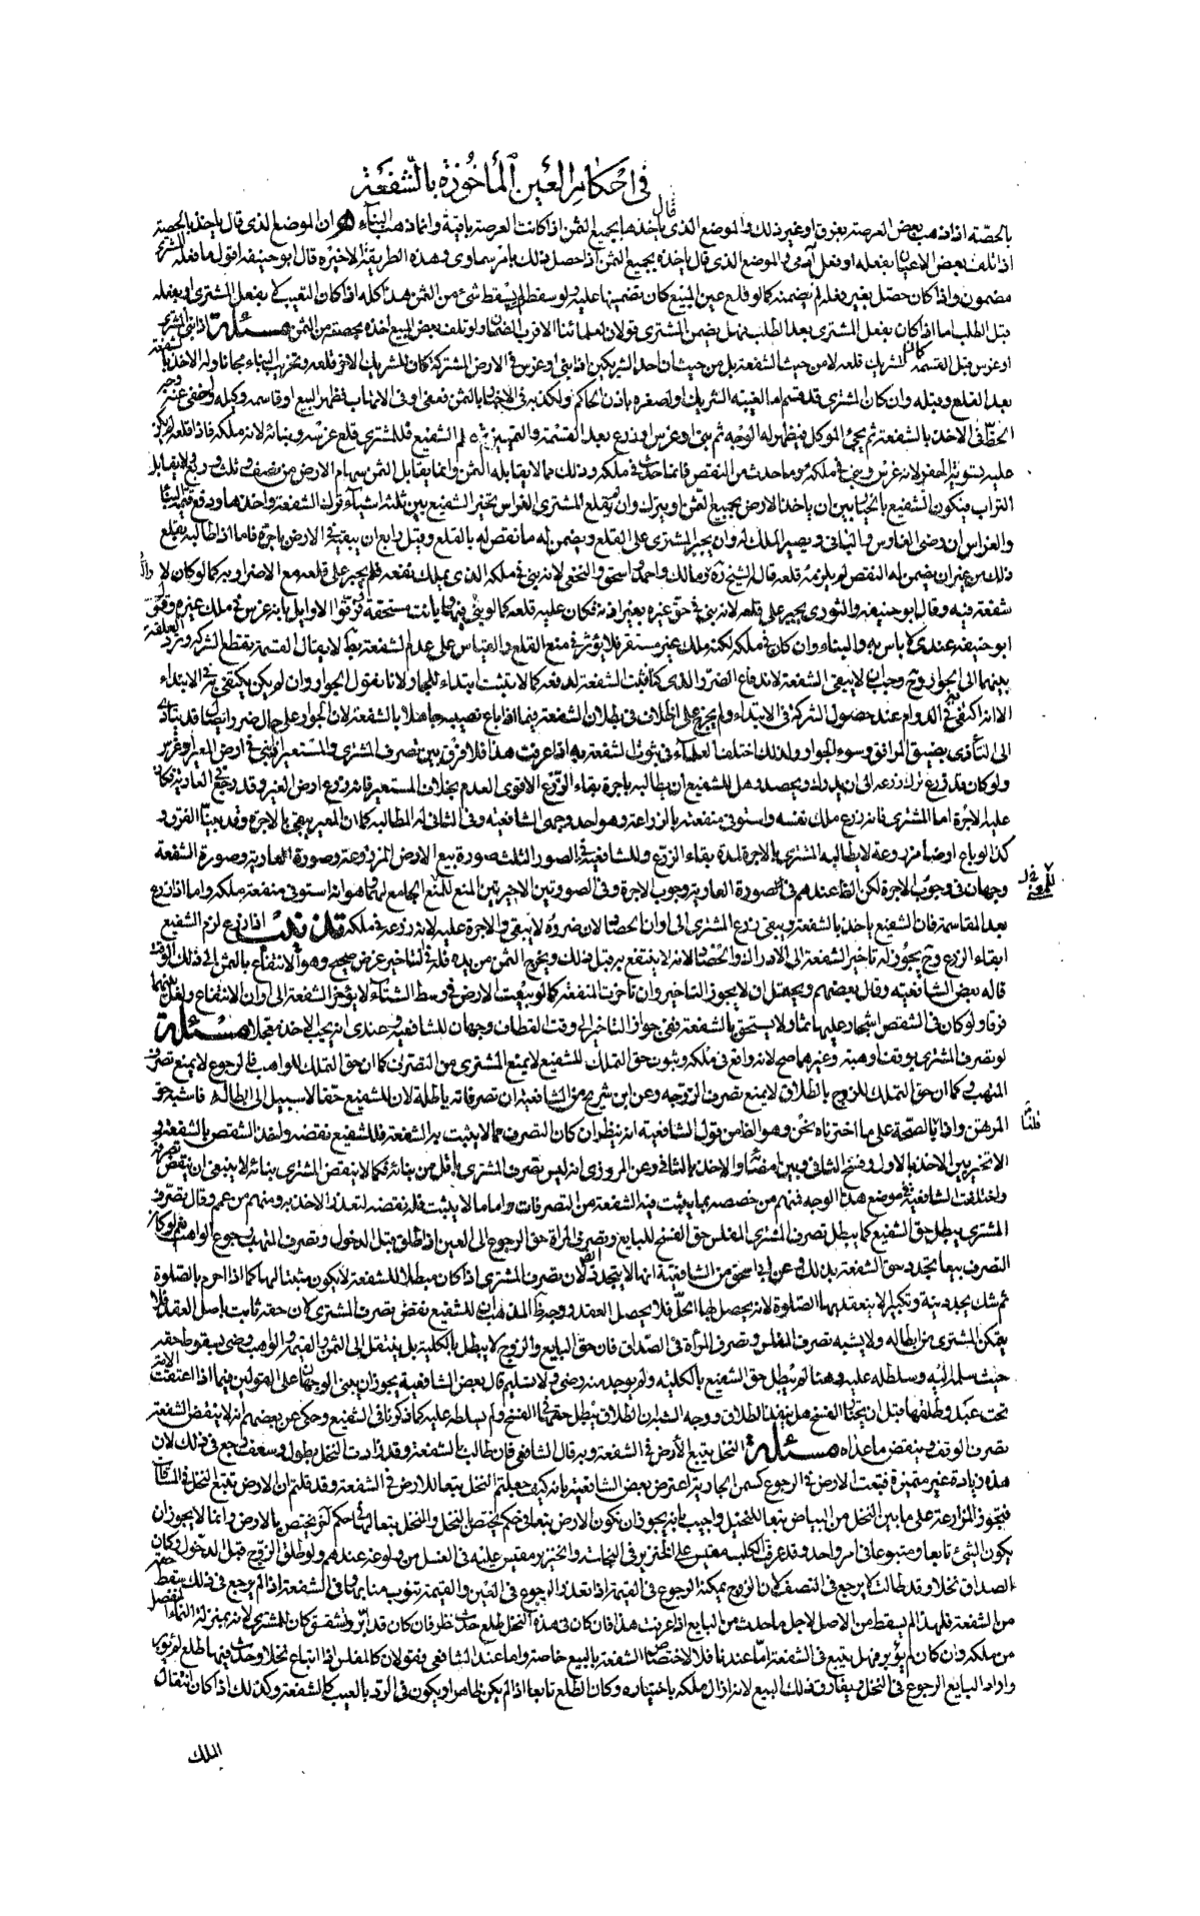 في احكام العين المأخوذة بالشفعة
بالحصة اذا ذهب بعض العرصة بغرق او غير ذلك والموضع الذى قال ياخذها بجميع الثمن اذا كانت العرصة باقية وانما ذهب البناء هو ان الموضع الذى قال ياخذ بالحصة
اذا تلف بعض الاعيان بفعله او فعل آدمى والموضع الذى قال ياخذه بجميع الثمن اذا حصل ذلك بامر سماوى وهذه الطريقة الاخيرة قال ابو حنيفه اقول ما فعله المشترى
مضمون واذا كان حصل بغير فعله لم يضمنه كما لو قلع عين المبيع كان تضمينها عليه ولو سقط لم يسقط شئ من الثمن هذا كله اذا كان التعيب بفعل المشترى او بفعله
قبل الطلب اما اذا كان بفعل المشترى بعد الطلب فهل يضمن المشترى قولان لعلمائنا الاقرب الضمان ولو تلف بعض المبيع اخذه بحصته من الثمن مسئلة اذا بنى المشترى
او غرس قبل القسمة كان للشريك قلعه لا من حيث الشفعة بل من حيث ان احد الشريكين اذا بنى او غرس في الارض المشتركة كان للشريك الاخر قلعه وتخريب البناء مجانا وله الاخذ بالشفعة
بعد القلع وقبله وان كان المشترى قد قسم اما لغيبة الشريك او لصغره باذن الحاكم
الحظ فى الاخذ بالشفعة ثم يجئ الموكل فيظهر له الوجه ثم بنى او غرس او زرع بعد القسمة والتمييز ثم علم الشفيع فللمشترى قلع غرسه وبنائه لانه ملكه فاذا قلعه لم يكن
عليه تسوية الحفر لانه غرس وبنى في ملكه وما حدث من النقص فانما حدث في ملكه وذلك مما لا يقابله الثمن وانما يقابل الثمن سهام الارض من نصف وثلث وربع ولا يقابل
التراب فيكون للشفيع بالخيار بين ان ياخذ الارض بجميع الثمن او يترك وان لم يقلع المشترى الغراس تخير الشفيع بين ثلثة اشياء ترك الشفعة واخذها ودفع قيمة البناء
والغراس ان رضى الغارس والبانى ويصير الملك له وان يجبر المشترى على القلع ويضمن له ما نقص له بالقلع وقيل رابع ان يبقيه في الارض باجرة فاما اذا طالبه بقلع
ذلك من غير ان يضمن له النقص لم يلزمه قلعه قاله الشيخ ره ومالك واحمد واسحق والنخعى لانه بنى في ملكه الذى يملك نفعه فلم يجبر على قلعه مع الاضرار به كما لو كان لا
شفعة فيه وقال ابو حنيفه والثورى يجبر على قلعه لانه بنى في حق غيره بغير اذنه فكان عليه قلعه كما لو بنى فيها وبانت مستحقة وفرقوا الاوايل بانه غرس في ملك غيره وقول
ابو حنيفه عندى لا باس به والبناء وان كان في ملكه لكنه ملك غير مستقر فلا يؤثر في منع القلع والقياس على عدم الشفعة بط لا يقال القسمة تقطع الشركة وترد العلقة
بينهما الى الجوار وح وجب ان لا يبقى الشفعة لاندفاع الضرر الذى كنا نثبت الشفعة لدفعه كما لا تثبت ابتداء للجار لانا نقول الجوار وان لم يكن يكتفى به في الابتداء
الا انه اكتفى في الدوام عند حصول الشركة في الابتداء ولم يخرج على الخلاف في بطلان الشفعة فيما اذا باع نصيبه جاهلا بالشفعة لان الجوار على حال ضرر وايضا قد يتادى
الى التأذى بضيق المرافق وسوء الجوار ولذلك اختلف العلماء في ثبوت الشفعة به اذا عرفت هذا فلا فرق بين تصرف المشترى والمستعير اذا بنى في ارض المعير او غرس
ولو كان قد زرع ترك زرعه الى ان يدرك ويحصد وهل للشفيع ان يطالبه باجرة بقاء الزرع الاقوى العدم بخلاف المستعير فانه زرع ارض الغير وقد رجع في العارية فكان
عليه الاجرة اما المشترى فانه زرع ملك نفسه واستوفى منفعته بالزراعة وهو احد وجهى الشافعية وفى الثانى له المطالبة كما ان المعير يبقى بالاجرة وقد بينا الفرق و
كذا لو باع ارضا مزروعة لا يطالبه المشترى بالاجرة لمدة بقاء الزرع وللشافعية في الصور الثلث صورة بيع الارض المزروعة وصورة العارية وصورة الشفعة
وجهان في وجوب الاجرة لكن الظاهر عندهم في صورة العارية وجوب الاجرة وفى الصورتين الاخيرتين المنع للمنع الجامع لهما هو انه استوفى منفعة ملكه واما اذا زرع
بعد المقاسمة فان الشفيع ياخذ بالشفعة ويبقى زرع المشترى الى اوان الحصاد لان ضرره لا يبقى والاجرة عليه لانه زرعه في ملكه تذنيب اذا زرع لزم الشفيع
ابقاء الزرع وح يجوز له تاخير الشفعة الى الادراك والحصاد لانه لا ينتفع به قبل ذلك ويخرج الثمن من يده فله في التاخير غرض صحيح وهو الانتفاع بالثمن الى ذلك الوقت
قاله بعض الشافعية وقال بعضهم ويحتمل ان لا يجوز التاخير وان تاخرت المنفعة كما لو بيعت الارض في وسط الشتاء لا يؤخر الشفعة الى اوان الانتفاع ولعل بينهما
فرقا ولو كان في الشقص اشجار عليها ثمار لا يستحق بالشفعة ففى جواز التاخير الى وقت القطاف وجهان للشافعية وعندى انه يجب الاخذ معجلا مسئلة
لو تصرف المشترى بوقف او هبة وغيرهما صح لانه واقع في ملكه وثبوت حق التملك للشفيع لا يمنع المشترى من التصرف كما ان حق التملك للواهب بالرجوع لا يمنع تصرف
المتهب وكما ان حق التملك للزوج بالطلاق لا يمنع تصرف الزوجة وعن ابن شريح من الشافعية ان تصرفاته باطلة لان للشفيع حقا لا سبيل الى ابطاله فاشبه حق
المرتهن واذا قلنا بالصحة على ما اخترناه نحن وهو الظاهر من قول الشافعية انه ينظر ان كان التصرف مما لا يثبت به الشفعة فللشفيع نقضه واخذ الشقص بالشفعة
الا تخير بين الاخذ بالاول وفسخ الثانى وبين امضائه والاخذ بالثانى وعن المروزى انه ليس تصرف المشترى باقل من بنائه فكما لا ينقض المشترى بنائه لا ينبغى ان ينقض تصرفه
واختلفت الشافعية في موضع هذا الوجه فمنهم من خصصه بما يثبت فيه الشفعة من التصرفات واما ما لا يثبت فله نقضه لتعذر الاخذ به ومنهم من عمم وقال تصرف
المشترى يبطل حق الشفيع كما يبطل تصرف المشترى المفلس حق الفسخ للبايع وتصرف المرأة حق الرجوع الى العين اذا طلق قبل الدخول وتصرف المتهب رجوع الواهب نعم لو كان
التصرف بيعا تجدد حق الشفعة بذلك وعن ابى اسحق من الشافعية انها لا يتجدد لان تصرف المشترى اذا كان مبطلا للشفعة لا يكون مثبتا لها كما اذا احرم بالصلوة
ثم شك فجدد نية وتكبيرا لا ينعقد بهما الصلوة لانه يحصل بها الحل فلا يحصل العقد ووجه ظ المذهب ان للشفيع نقض تصرف المشترى لان حقه ثابت باصل العقد فلا
يتمكن المشترى من ابطاله ولا يشبه تصرف المفلس وتصرف المرأة في الصداق فان حق البايع والزوج لا يبطل بالكلية بل ينتقل الى الثمن والقيمة والواهب رضى بسقوط حقه
حيث سلمه اليه وسلطه عليه وهنا لم يبطل حق الشفيع بالكلية ولم يوجد منه رضى ولا تسليم قال بعض الشافعية يجوز ان يبنى الوجهان على القولين فيما اذا اعتقت الامة
تحت عبد وطلقها قبل ان يختار الفسخ هل ينفذ الطلاق ووجه الشبه ان الطلاق يبطل حقها في الفسخ ولم يسلطه عليه كما ذكرنا فى الشفيع وحكى عن بعضهم انه لا ينقض الشفعة
تصرف الوقف وينقض ما عداه مسئلة النخل يتبع الارض في الشفعة وبه قال الشافعى فان طالب بالشفعة وقد زادت النخل بطول وسعف رجع في ذلك لان
هذه زيادة غير متميزة فتبعت الارض في الرجوع كسمن الجارية اعترض بعض الشافعية بانه كيف جعلتم النخل تبعا للارض في الشفعة وقد قلتم ان الارض تتبع النخل في المساقاة
فتجوز المزارعة على ما بين النخل من البياض تبعا للنخيل واجيب بانه يجوز ان تكون الارض تبعا في حكم يختص بالنخل والنخل يتبعا لها في حكم آخر يختص بالارض وانما لا يجوز ان
يكون الشئ تابعا ومتبوعا في امر واحد وقد عرف ان الكلب مقيس على الخنزير في النجاسة والخنزير مقيس عليه في الغسل من ولوغه عندهم ولو طلق الزوج قبل الدخول وكان
الصداق نخلا وقد طالت لا يرجع في النصف لان الزوج يمكنه الرجوع في القيمة اذا تعذر الرجوع في العين والقيمة تنوب منابها وفى الشفعة اذا لم يرجع في ذلك سقط حقه
من الشفعة فلهذا لم يسقط من الاصل لاجل ما حدث من البايع اذا عرفت هذا فان كان في هذه النخل طلع حدث نظر فان كان قد ابر وتشقق كان للمشترى لانه بمنزلة النماء المنفصل
من ملكه وان كان لم يؤبر فهل يتبع في الشفعة اما عندنا فلا لاختصاص الشفعة بالبيع خاصة واما عند الشافعى فقولان كالمفلس اذا ابتاع نخلا وحدث فيها طلع لم يؤبر
واراد البايع الرجوع في النخل ويفارق ذلك البيع لانه ازال ملكه باختياره وكان الطلع تابعا اذا لم يكن ظاهرا ويكون في الرد بالعيب كالشفعة وكذلك اذا كان انتقال
الملك